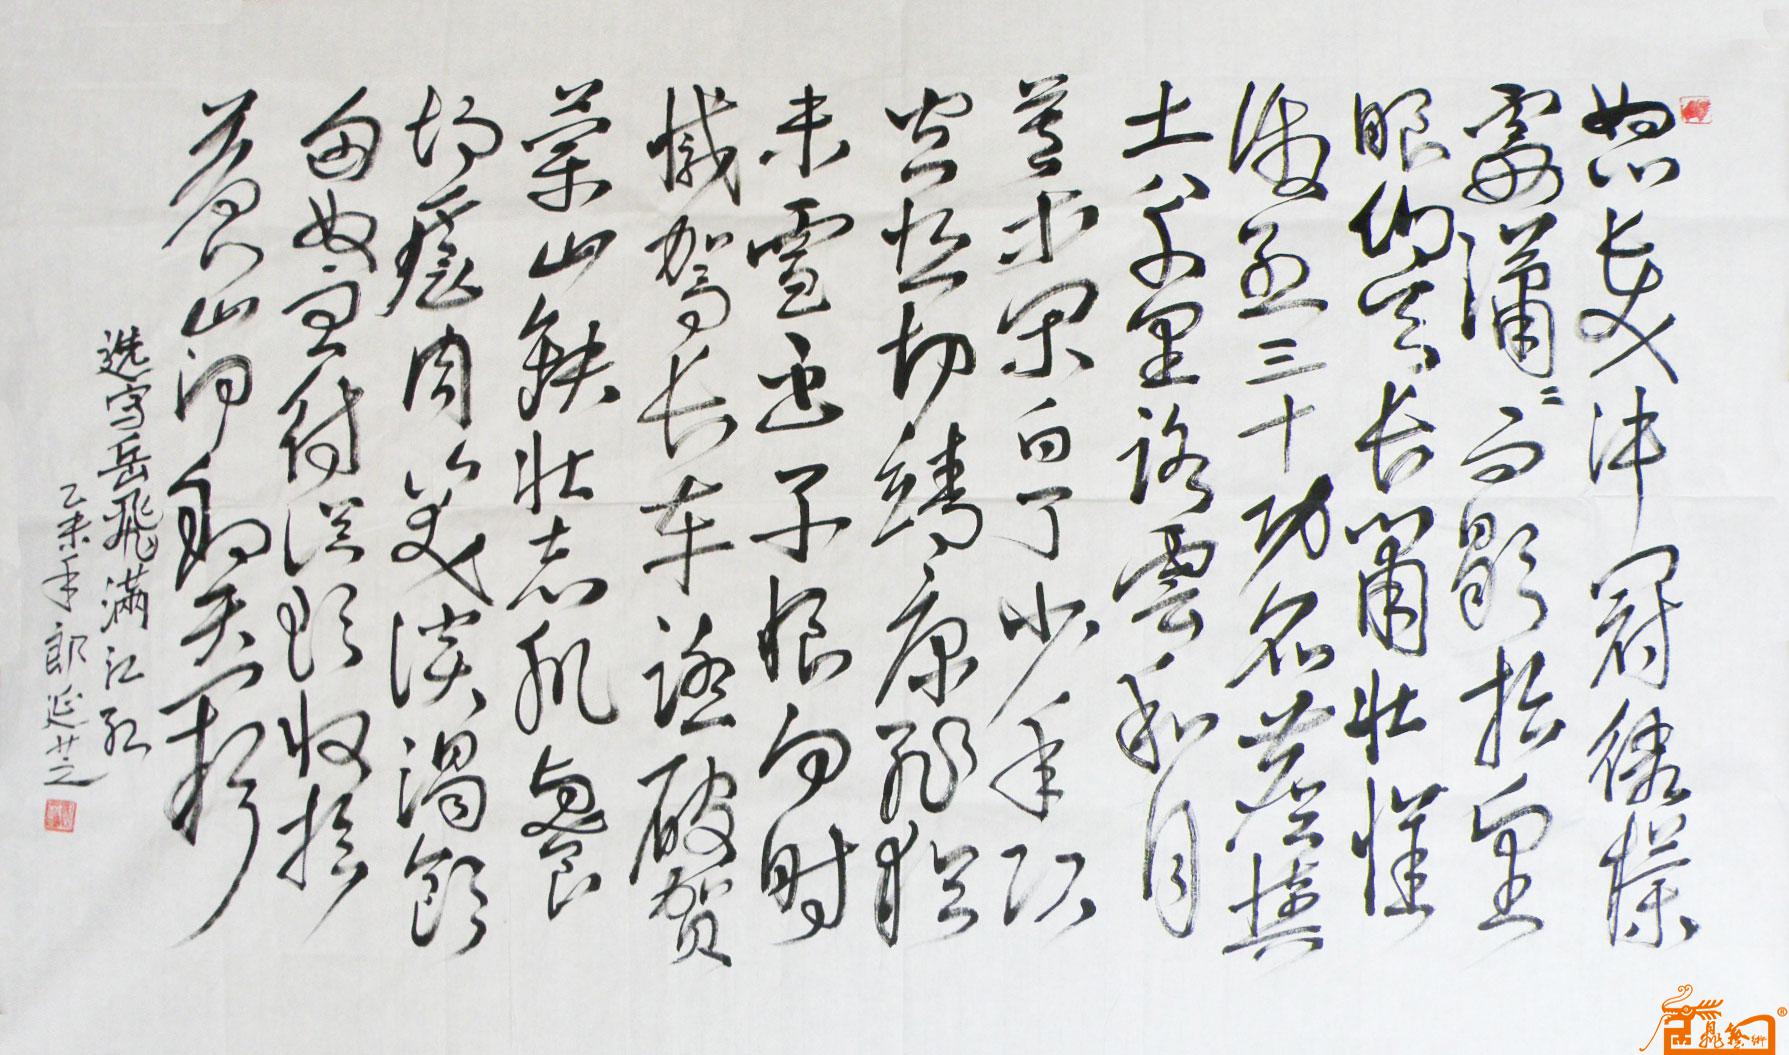 怒发冲冠凭栏
处潇〻雨歇抬望
眼仰天长啸壮怀
激烈三十功名尘與
土八千里路雲和月
莫等闲白了少年头
空悲切靖康耻猶
未雪臣子恨何时
滅驾长车踏破贺
蘭山缺壮志飢餐
胡虏肉笑谈渴飲
匈奴血待從头收拾
舊山河朝天阙
选写岳飛满江红
乙未年 郎延芝